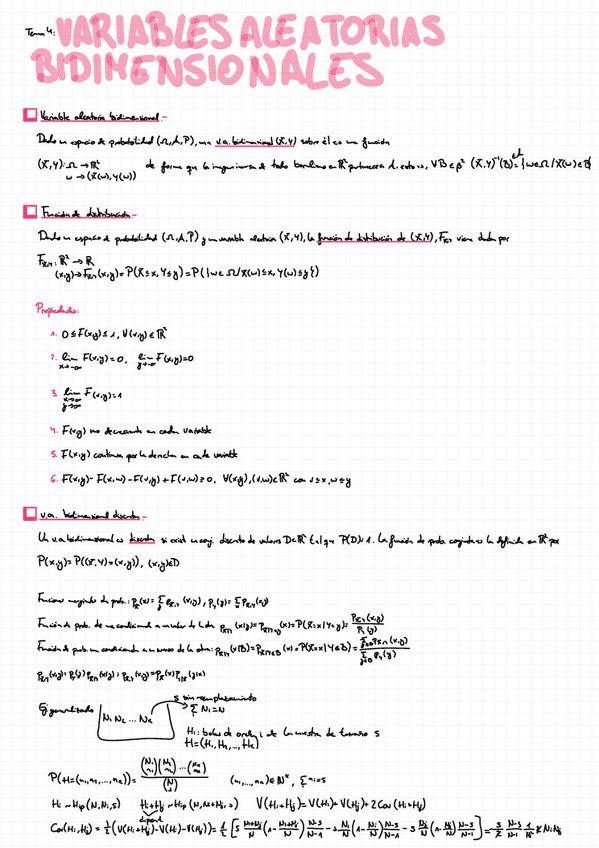 Tema 4: VARIABLES ALEATORIAS
BIDIMENSIONALES
Variable aleatoria bidimensional.-
Dado un espacio de probabilidad (Ω,A,P), una v.a. bidimensional (X,Y) sobre él es una función
(X,Y): Ω → ℝ² de forma que la imagen inversa de todo boreliano en ℝ² pertenezca A, esto es, ∀B ∈ β² (X,Y)⁻¹(B)={ω∈Ω/X(ω)∈B}
ω → (X(ω),Y(ω))
Función de distribución.-
Dado un espacio de probabilidad (Ω,A,P) y una variable aleatoria (X,Y), la función de distribución de (X,Y), F_{X,Y} viene dada por
F_{X,Y}: ℝ² → ℝ
(x,y)→F_{X,Y}(x,y)=P(X≤x,Y≤y)=P({ω∈Ω/X(ω)≤x,Y(ω)≤y})
Propiedades:
1. 0≤F(x,y)≤1, ∀(x,y)∈ℝ²
2. lim_{x→-∞} F(x,y)=0, lim_{y→-∞} F(x,y)=0
3. lim_{x→∞ y→∞} F(x,y)=1
4. F(x,y) no decreciente en cada variable
5. F(x,y) continua por la derecha en cada variable
6. F(x,y)-F(x,w)-F(v,y)+F(v,w)≥0, ∀(x,y),(v,w)∈ℝ² con v≤x, w≤y
v.a. bidimensional discreta.-
Una v.a. bidimensional es discreta si existe un conj. discreto de valores D⊂ℝ² tal que P(D)=1. La función de prob. conjunta es la definida en ℝ² por
P(x,y)=P((X,Y)=(x,y)), (x,y)∈D
Funciones marginales de prob.: P_X(x)=Σ_y P_{X,Y}(x,y), P_Y(y)=Σ_x P_{X,Y}(x,y)
Función de prob. de una condicionada a un valor de la otra: P_{X|Y}(x|y)=P_{X|Y=y}(x)=P(X=x|Y=y)= P_{X,Y}(x,y)/P_Y(y)
Función de prob. un condicionada a un suceso de la otra: P_{X|Y}(x|B)=P_{X|Y∈B}(x)=P(X=x|Y∈B)= Σ_{y∈B} P_{X,Y}(x,y)/Σ_{y∈B} P_Y(y)
P_{X,Y}(x,y)=P_Y(y) P_{X|Y}(x|y); P_{X,Y}(x,y)=P_X(x) P_{Y|X}(y|x)
s sin reemplazamiento
Ej generalizado N₁ N₂ ... N_k Σ N_i=N
H_i: bolas de color i de la muestra de tamaño s
H=(H₁,H₂,...,H_k)
P(H=(n₁,n₂,...,n_k))= (N₁ n₁)(N₂ n₂)...(N_k n_k)/(N s) (n₁,...,n_k)∈ℕᵏ, Σn_i=s
H_i ~ Hip(N,N_i,s) H_i+H_j ~ Hip(N,N_i+N_j,s) V(H_i+H_j)=V(H_i)+V(H_j)+2Cov(H_i,H_j)
Cov(H_i,H_j)=½(V(H_i+H_j)-V(H_i)-V(H_j))=½[s (N_i+N_j)/N (1-(N_i+N_j)/N) (N-s)/(N-1) - s N_i/N (1-N_i/N) (N-s)/(N-1) - s N_j/N (1-N_j/N) (N-s)/(N-1)]=-s/2 (N-s)/(N-1) 1/N² 2 N_i N_j